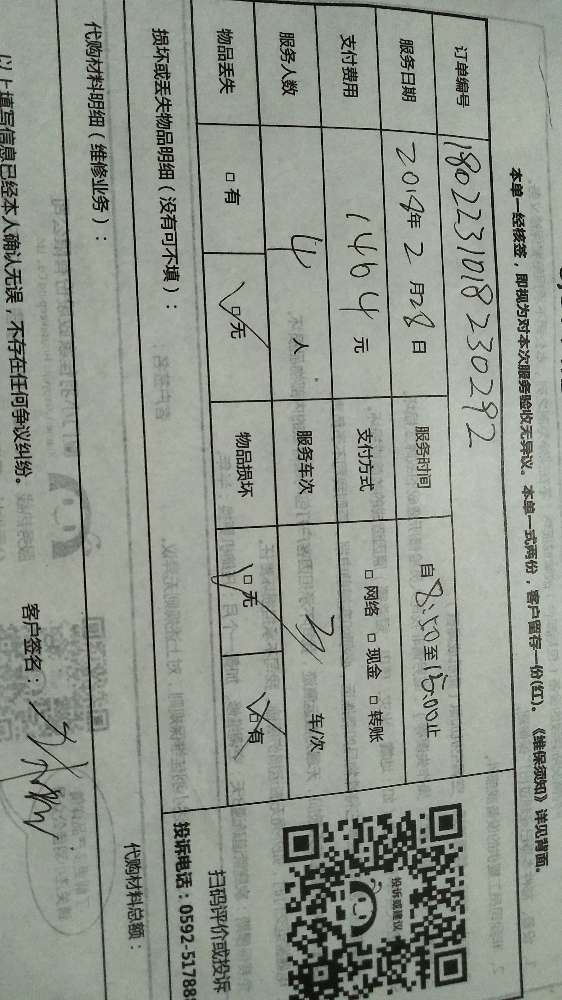 本单一经核签，即视为对本次服务验收无异议。本单一式两份，客户留存一份(红)。《维保须知》详见背面。
订单编号 1802231018230292
服务日期 2018年2月28日 服务时间 自8:50至18:00止
支付费用 1464元 支付方式 □网络 □现金 □转账
服务人数 4人 服务车次 车/次
物品丢失 □有 □无 物品损坏 □无 □有
损坏或丢失物品明细（没有可不填）：
代购材料明细（维修业务）：
代购材料总额：
投诉或建议
扫码评价或投诉
投诉电话：0592-51788
以上填写信息已经本人确认无误，不存在任何争议纠纷。
客户签名：